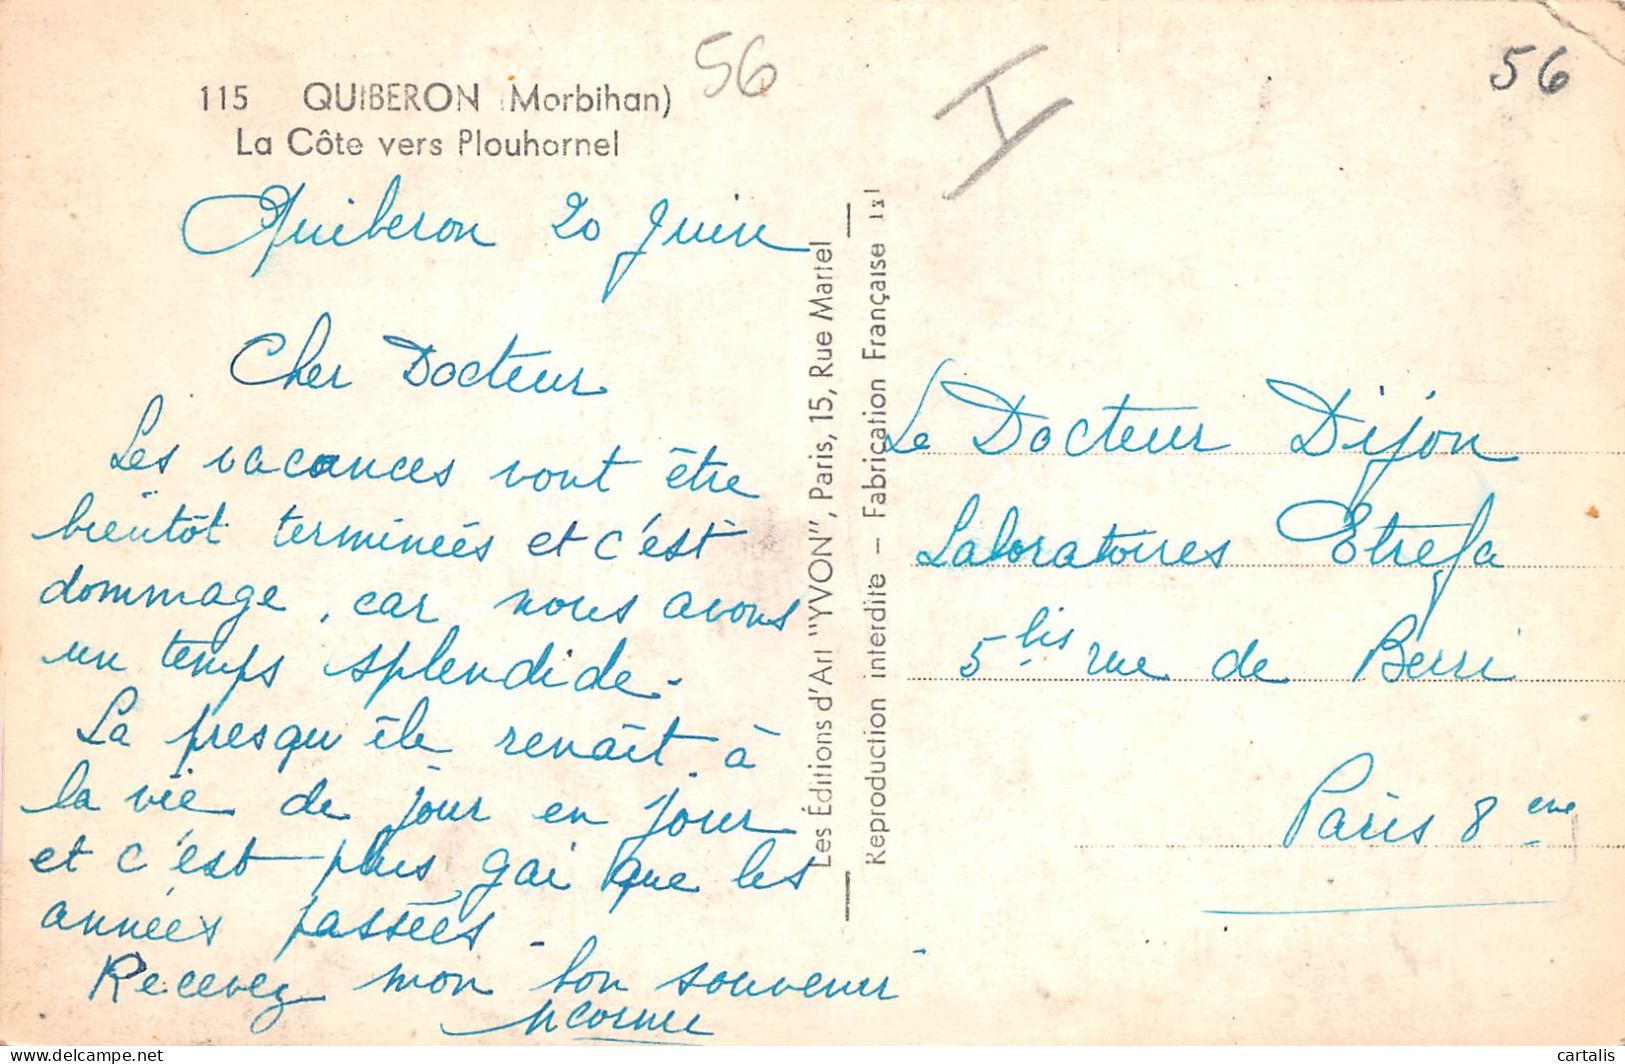 56
56
115 QUIBERON (Morbihan)
La Côte vers Plouharnel
Quiberon 20 Juin
Cher Docteur
Les vacances vont être
bientôt terminées et c'est
dommage, car nous avons
un temps splendide.
La presqu'île renaît à
la vie de jour en jour
et c'est plus gai que les
années passées.
Recevez mon bon souvenir
Les Éditions d'Art "YVON", Paris, 15, Rue Martel
Reproduction interdite — Fabrication Française
Le Docteur Dijon
Laboratoires Etrefa
5 bis rue de Berri
Paris 8 eme
cartalis
delcampe.net